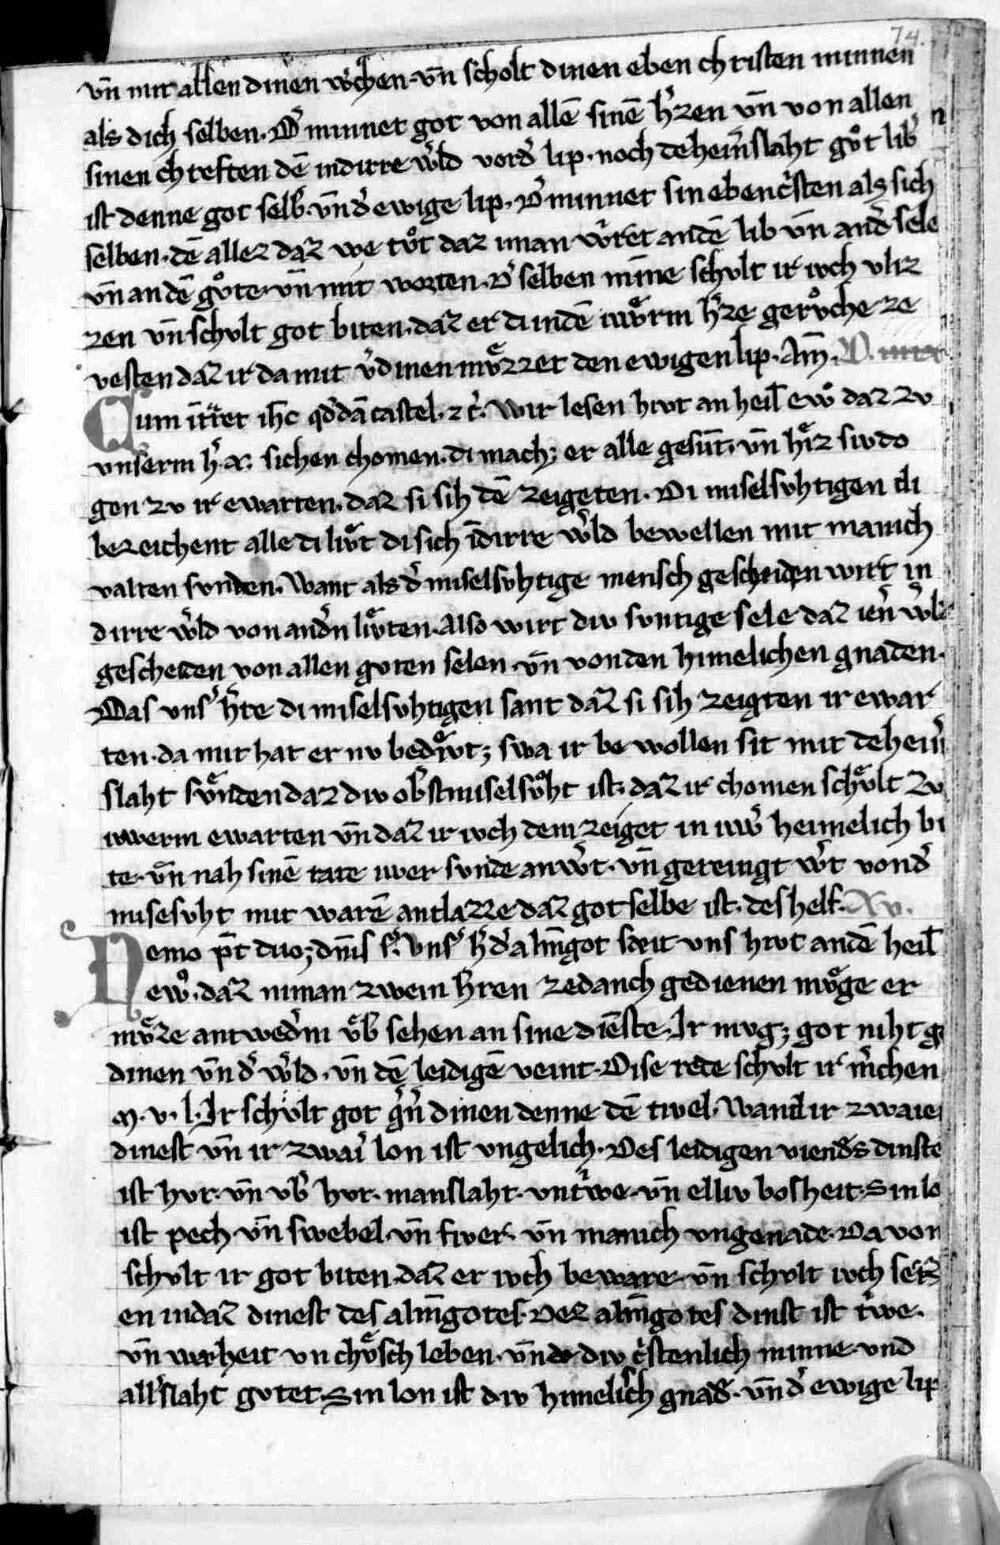 74.
vn̄ mit allen dinen w̉chen. vn̄ scholt dinen eben christen minnen
als dich selben. D̉ minnet got von allē sinē h̉zen vn̄ von allen
sinen chreften dē indirre w̉ld vord̉ lip. noch deheīn̉slaht gůt lib̉
ist denne got selb̉. vn̄ d̉ ewige lip. D̉ minnet sin ebenc̉sten als sich
selben. dē allez daz we tůt daz iman w̉ret andē lib vn̄ and̉ sele
vn̄ an dē gůte. vn̄ mit worten. D̉ selben minne schvlt ir ivch vliz
zen vn̄ schvlt got biten. daz er di indē iwͤrm h̉ze gerůche ze
vesten daz ir da mit v̉dinen mvͤzzet den ewigen lip. Am̄.
Cum īt̉ret ih̄c qd̄dā castel. ⁊ c̉. Wir lesen hivt an heil̄ ew̉o daz zv
vnserm h̉. x. sichen chomen. di mach; er alle gesūt. vn̄ hiez siv do
gen zv ir ewarten. daz si sih dē zeigeten. Di miselsvhtigen di
bezeichent alle di livt di sich īdirre w̉ld bewellen mit manich
valten svnden. Want als d̉ miselsvhtige mensch gescheiden wirt in
dirre w̉ld von and̉n livͤten. Also wirt div svntige sele daz ien̉ w̉ld
gescheiden von allen gvten selen. vn̄ von den himelichen gnaden.
Das vns̉ h̉re di miselsvhtigen sant daz si sih zeigten ir ewar
ten. da mit hat er nv bedivͤt; swa ir be wollen sit mit deheīn̉
slaht svͤnden daz div ob̉st miselsvht ist. daz ir chomen schvͤlt zv
iwerm ewarten vn̄ daz ir ivch dem zeiget in iwͤ heimelich bi
te. vn̄ nah sinē rate iwer svnde anw̉t. vn̄ gereinigt w̉t von d̉
misesvht mit warē antlazze daz got selbe ist. des helf. Xv.
Nemo p̄t duo; dn̄is s̉. Vns̉ h̉ d̉ alm̄got seit vns hivt andē heil̄
ew̉o. daz niman zwein h̉ren zedanch gedienen mvͤge er
mvͤze antwed̉m vͤb̉ sehen an sine dienste. Ir mvg; got niht ge
dinen vn̄ d̉ w̉ld. vn̄ dē leidigē veint. Dise rede schvlt ir m̉chen
m. v. l. Ir schvͤlt got g̉n̉ dinen denne dē tivel. Wand ir zwaier
dinest vn̄ ir zwai̾ lon ist vngelich. Des leidigen viend̉s dinste
ist hvr. vn̄ vb̉ hvr. manslaht. vnt̉we. vn̄ elliv bosheit. Sin lo
ist pech vn̄ swebel. vn̄ fiver. vn̄ manich vngenade. Da von
schvlt ir got biten. daz er ivch beware. vn̄ schvlt ivch
en indaz dinest des alm̄gotes. Dez alm̄gotes dinst ist t̉we.
vn̄ warheit vn chvͤsch leben. vn̄ div c̉stenlich minne. vnd
all̉slaht gvtet. Sin lon ist div himelich gnad̉. vn̄ d̉ ewige lip